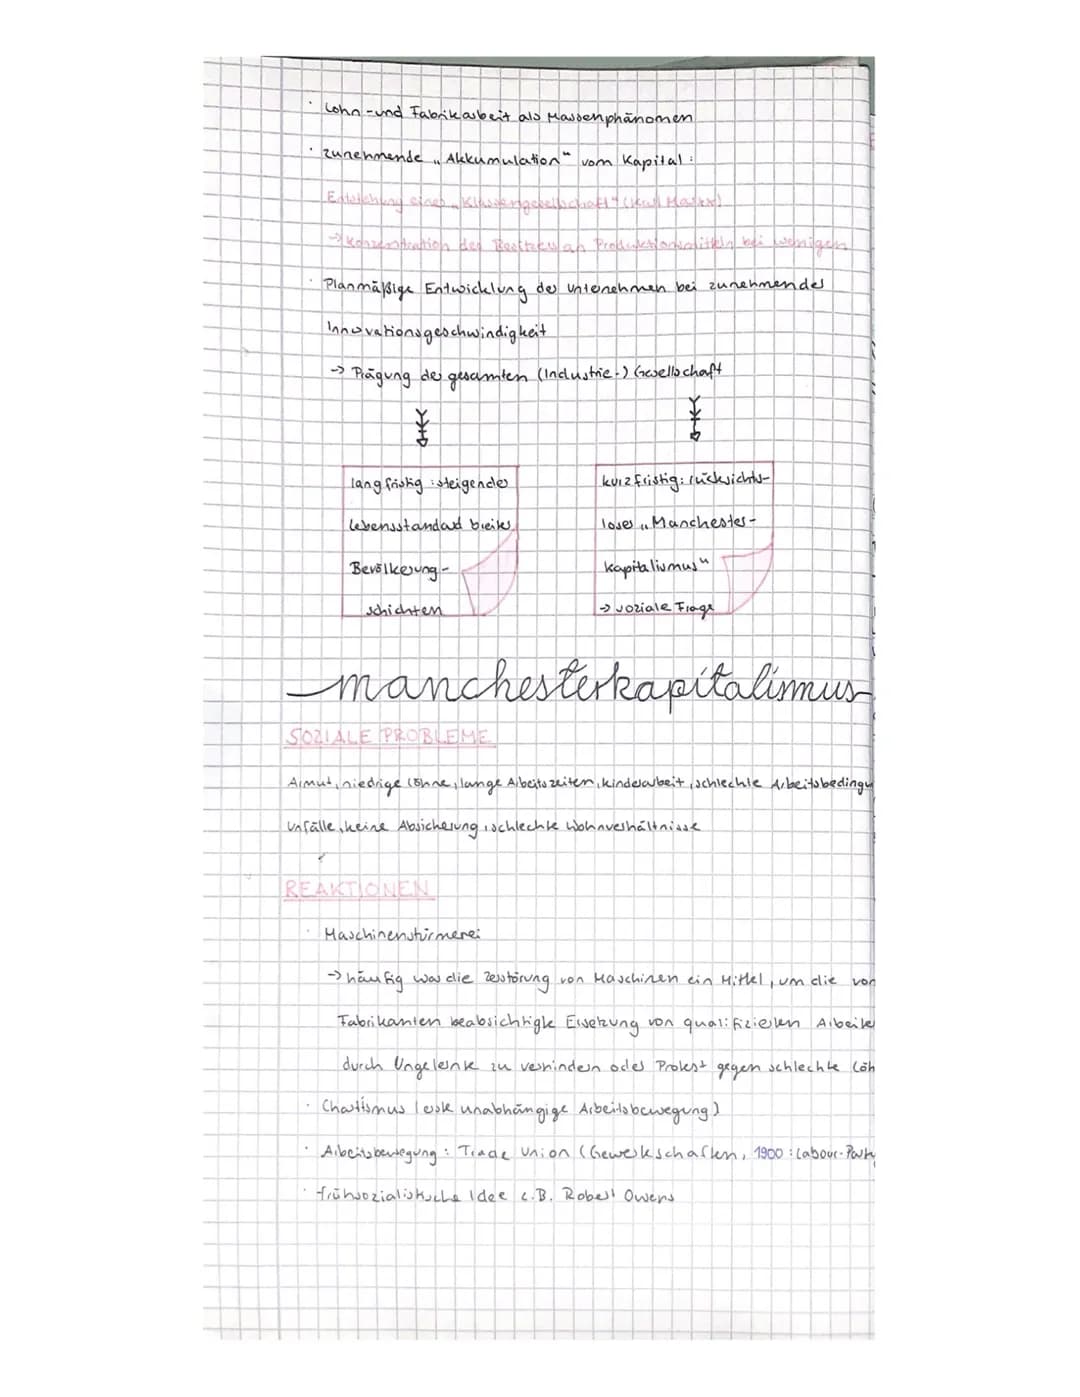 · Lohn-und Fabrikarbeit als Massenphänomen
· zunehmende „Akkumulation" vom Kapital:
Entstehung einer „Klassengesellschaft" (Karl Marx)
→ Konzentration des Besitzes an Produktionsmitteln bei wenigen
· Planmäßige Entwicklung der Unternehmen bei zunehmender
Innovationsgeschwindigkeit
→ Prägung der gesamten (Industrie-) Gesellschaft
langfristig: steigender
Lebensstandard breiter
Bevölkerung-
schichten
kurzfristig: rücksichts-
loser „Manchester-
kapitalismus"
→ soziale Frage
manchesterkapitalismus
SOZIALE PROBLEME
Armut, niedrige Löhne, lange Arbeitszeiten, kinderarbeit, schlechte Arbeitsbedingu
Unfälle, keine Absicherung, schlechte Wohnverhältnisse
REAKTIONEN
· Maschinenstürmerei
→ häufig war die Zerstörung von Maschinen ein Mittel, um die von
Fabrikanten beabsichtigte Ersetzung von qualifizierten Arbeiter
durch Ungelernte zu verhindern oder Protest gegen schlechte Löh
· Chartismus (erste unabhängige Arbeitsbewegung)
· Arbeitsbewegung: Trade Union (Gewerkschaften, 1900: Labour-Party
· frühsozialistische Idee z.B. Robert Owens